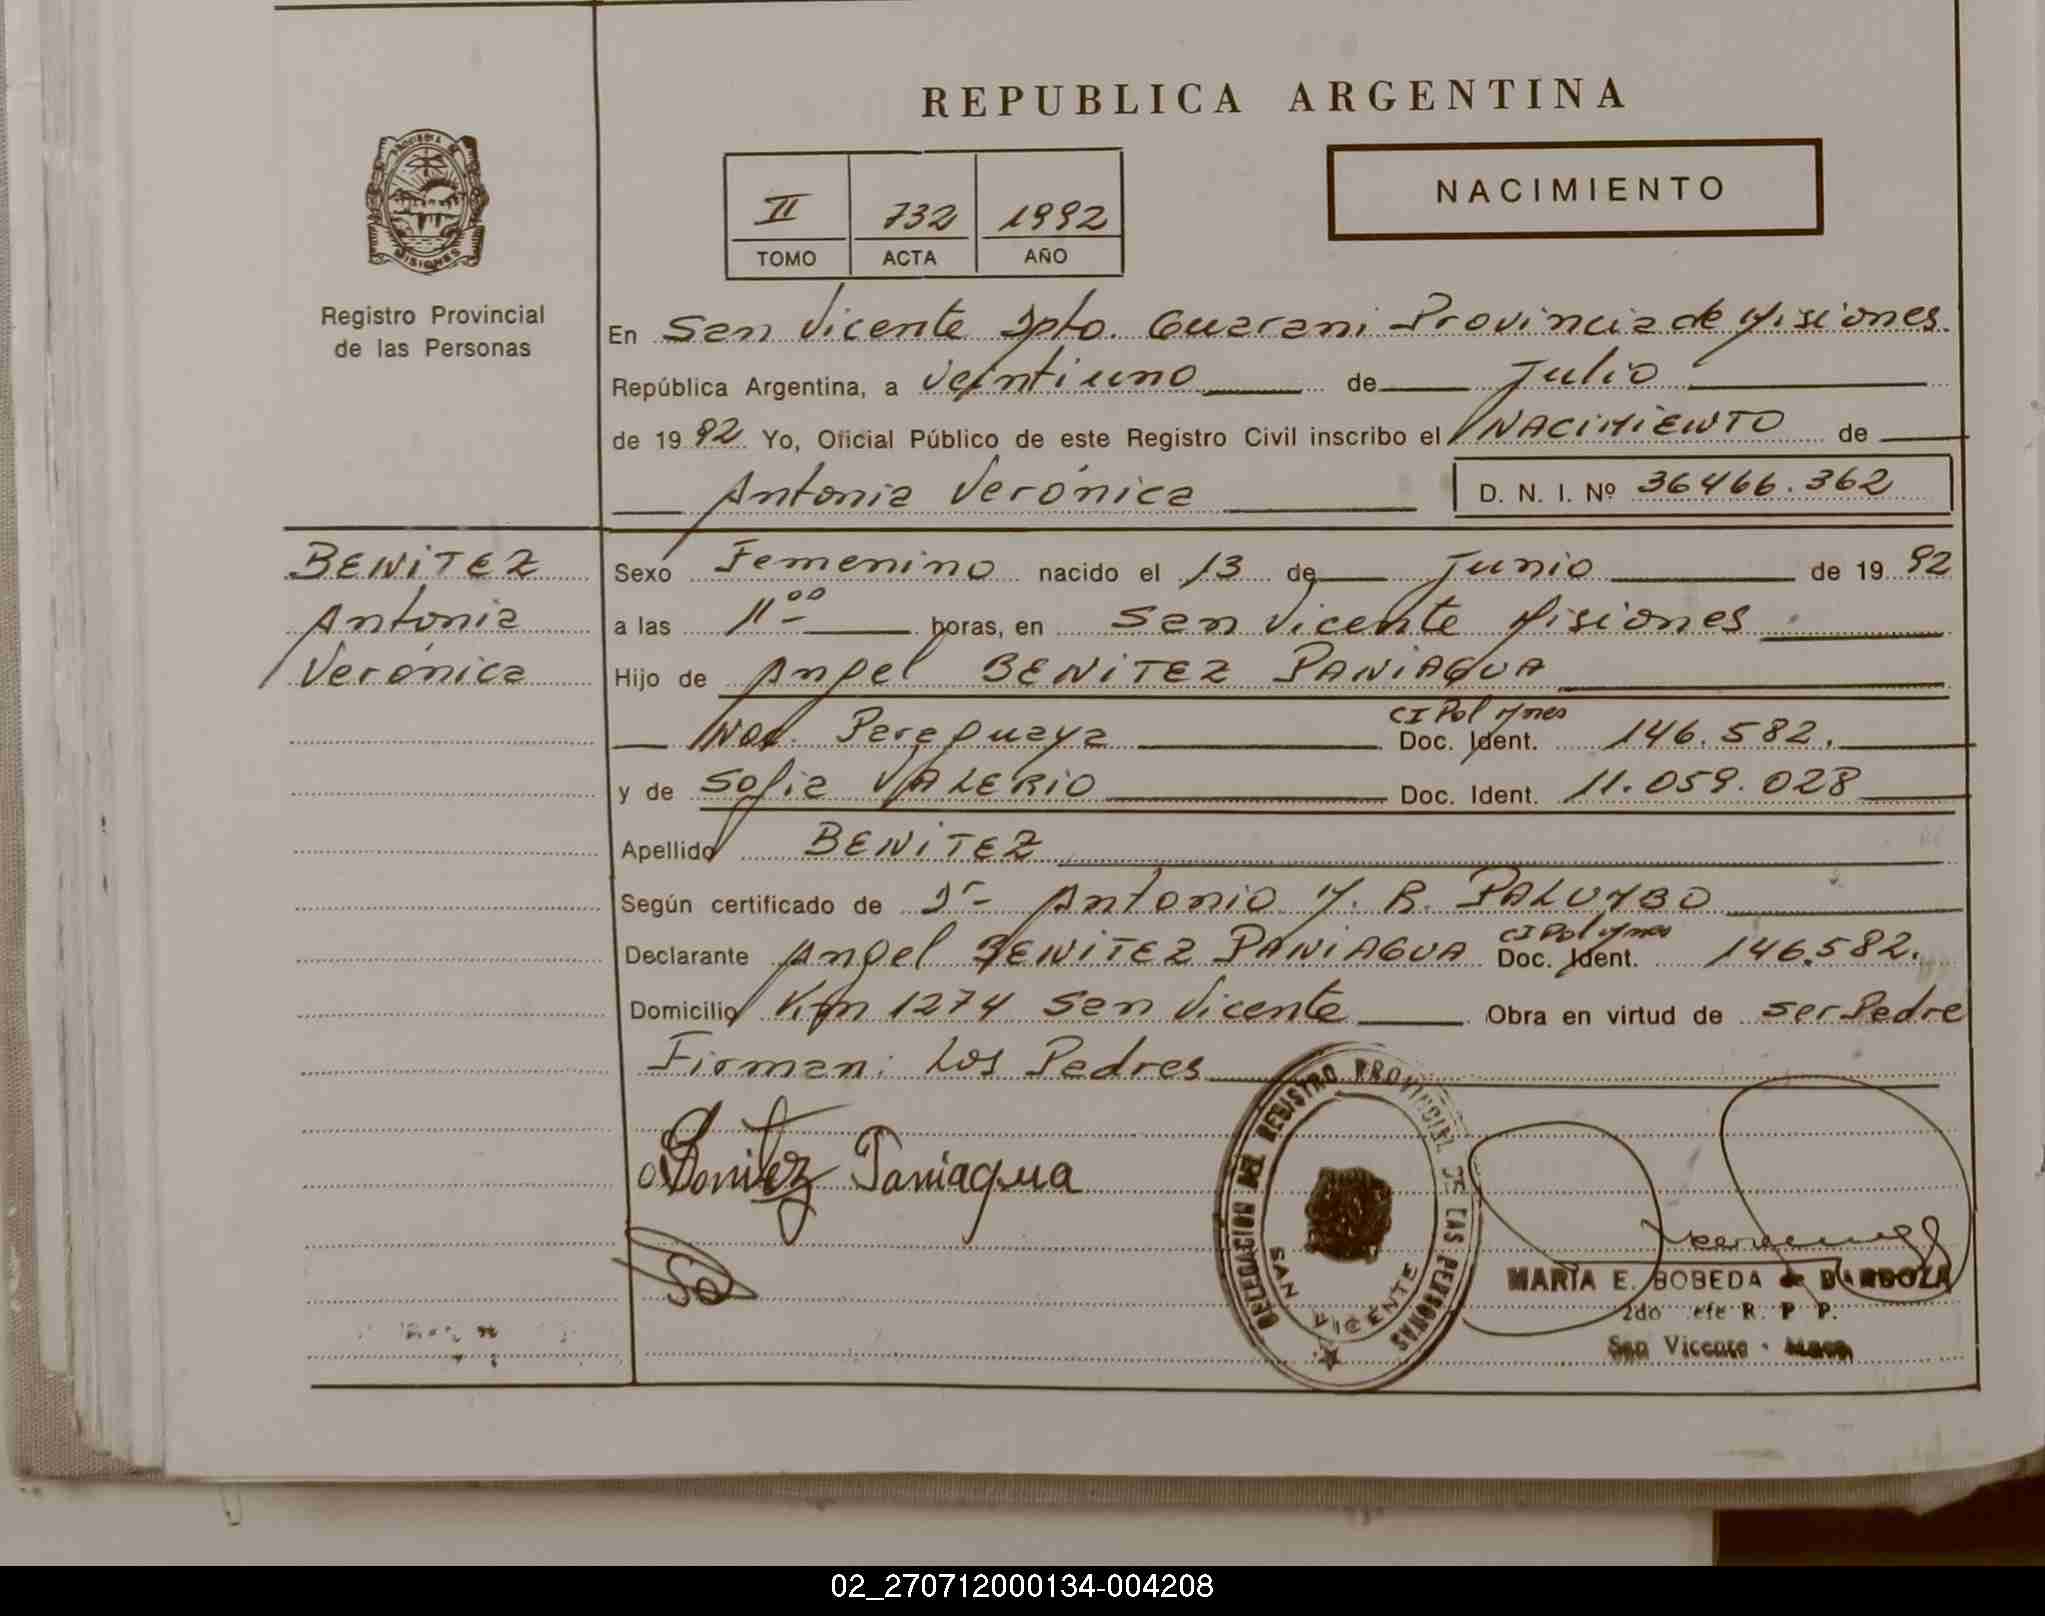 REPUBLICA ARGENTINA
NACIMIENTO
II 732 1992
TOMO ACTA AÑO
MISIONES
Registro Provincial
de las Personas
En San Vicente Dpto. Guarani Provincia de Misiones.
República Argentina, a veintiuno de Julio
de 1992. Yo, Oficial Público de este Registro Civil inscribo el NACIMIENTO de
Antonia Verónica D. N. I. Nº 36466.362
BENITEZ
Antonia
Verónica
Sexo Femenino nacido el 13 de Junio de 1992
a las 11⁰⁰ horas, en San Vicente Misiones
Hijo de Angel BENITEZ PANIAGUA
Nac. Paraguaya CI Pol Mnes Doc. Ident. 146.582.
y de Sofia VALERIO Doc. Ident. 11.059.028
Apellido BENITEZ
Según certificado de Dr Antonio M. R. PALUMBO
Declarante Angel BENITEZ PANIAGUA CI Pol Mnes Doc. Ident. 146.582.
Domicilio Km 1274 San Vicente Obra en virtud de ser Padre
Firman: Los Padres
Benitez Paniagua
DELEGACION DEL REGISTRO PROVINCIAL DE LAS PERSONAS
SAN VICENTE
MARIA E. BOBEDA de BARBOZA
2do efe R. P P.
San Vicente -
02_270712000134-004208